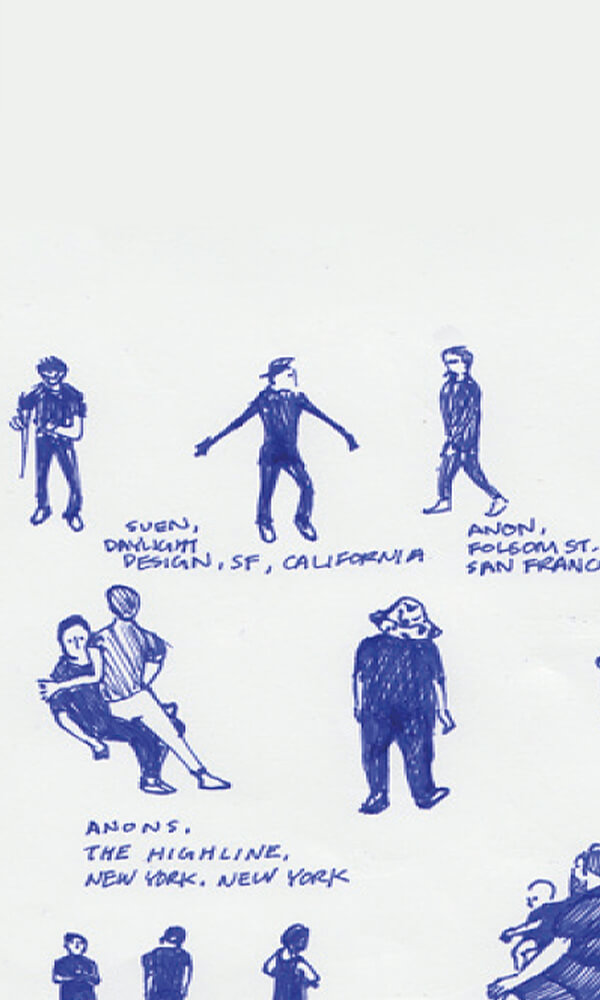 SVEN,
DAYLIGHT
DESIGN, SF, CALIFORNIA
ANON,
FOLSOM ST.
SAN FRANC
ANONS,
THE HIGHLINE,
NEW YORK. NEW YORK